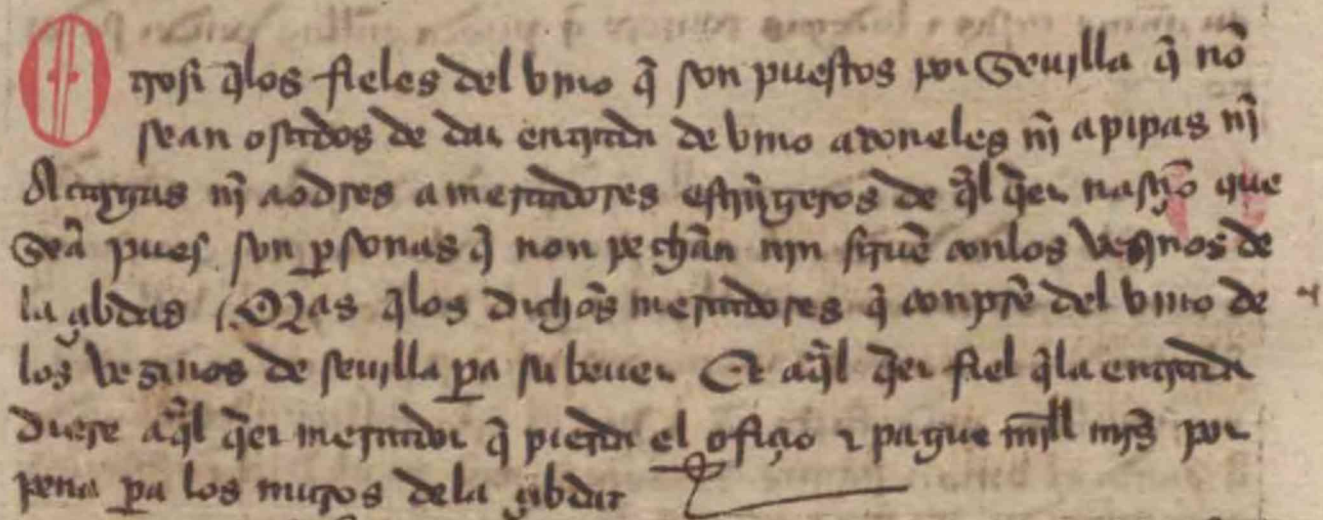 Otrosi q̃los fieles del vino q̃ son puestos por Seuilla q̃ nõ
sean osados de dar entrada de vino a toneles nj̃ a pipas nj̃
A cargas nj̃ a odres a mercadores estrãgeros de q̃l q̃er naçiõ que
seã pues son p̱sonas q̃ non pechan njn siruẽ conlos vezjnos de
la çibdat Mas q̃los dichos mercadores q̃ conprẽ del vino de
los vezinos de seuilla p̱a su beuer Et aq̃l q̃er fiel q̃la entrada
diere aq̃l q̃er mercador q̃ pierda el ofiçio ⁊ pague mjll mrs̃ por
pena p̱a los muros dela çibdat